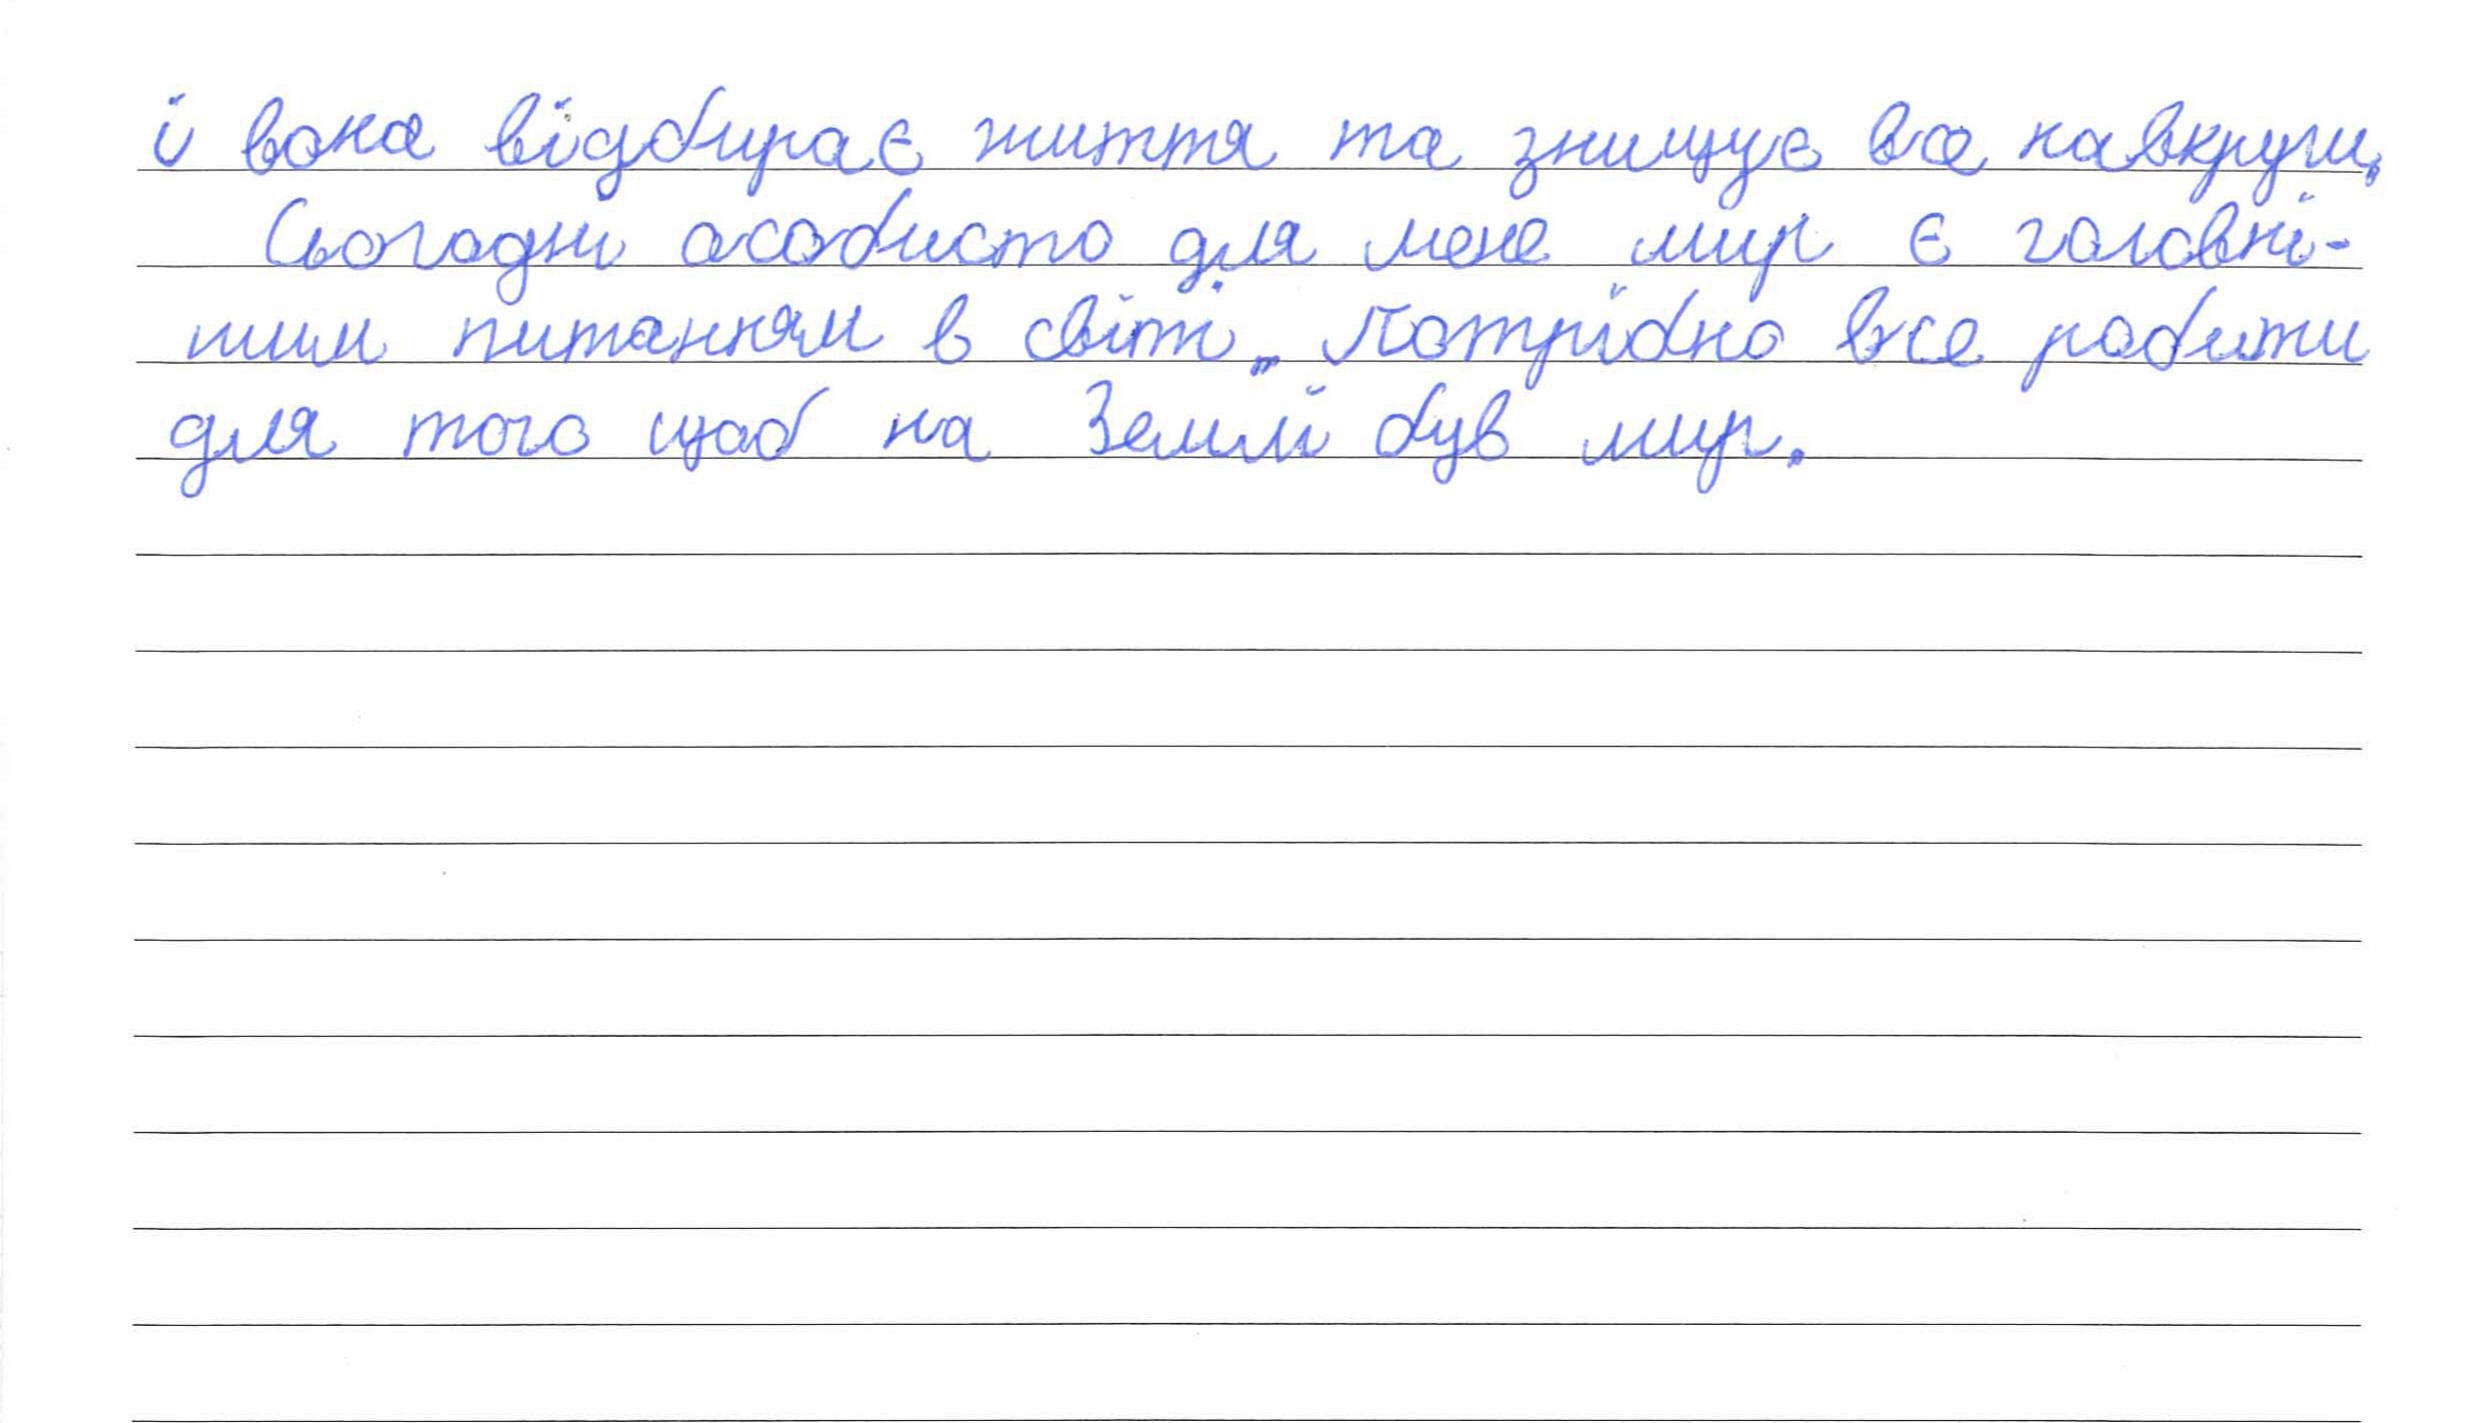 і вона відбирає життя та знищує все навкруги.
Сьогодні особисто для мене мир є головні-
шим питанням в світі. Потрібно все робити
для того щоб на Землі був мир.